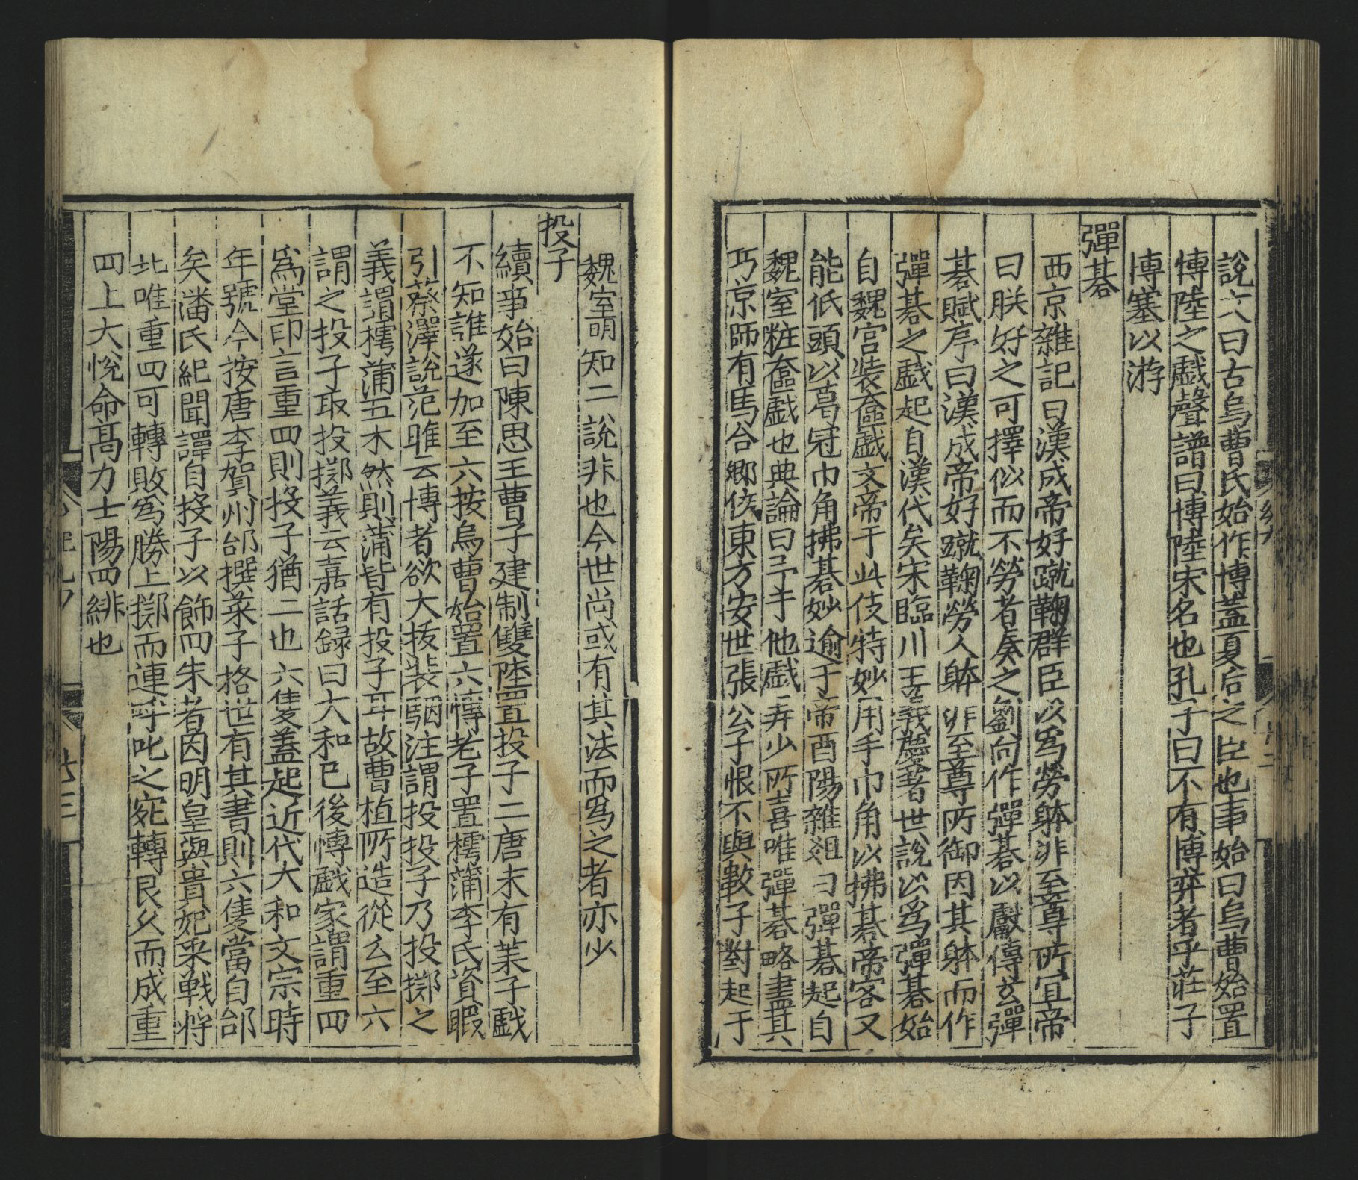 說六曰古烏曹氏始作博蓋夏后之臣也事始曰烏曹始置
博陸之戲聲譜曰博陸宋名也孔子曰不有博弈者乎莊子
博塞以游
彈碁
西京雜記曰漢成帝好蹴鞠群臣以爲勞躰非至尊所宜帝
曰朕好之可擇似而不勞者奏之劉向作彈碁以獻傳玄彈
碁賦序曰漢成帝好蹴鞠勞人躰非至尊所御因其躰而作
彈碁之戲起自漢代矣宋臨川王義慶著世說以爲彈碁始
自魏宮裝奩戲文帝于此伎特妙用手巾角以拂碁帝客又
能低頭以葛冠巾角拂碁妙逾于帝酉陽雜俎曰彈碁起自
魏室粧奩戲也典論曰予于他戲弄少所喜唯彈碁略盡其
巧京師有馬合鄉侯東方安世張公子恨不與數子對起于
魏室明知二說非也今世尚或有其法而爲之者亦少
投子
續事始曰陳思王曹子建制雙陸置投子二唐末有葉子戲
不知誰遂加至六按烏曹始置六博老子置樗蒲李氏資暇
引蔡澤說范雎云博者欲大抜裴駰注謂投投子乃投擲之
義謂樗蒲五木然則蒲皆有投子耳故曹植所造從幺至六
謂之投子取投擲義云嘉話録曰大和已後博戲家謂重四
爲堂印言重四則投子猶二也六隻蓋起近代大和文宗時
年號今按唐李賀州郃撰菜子格世有其書則六隻當自郃
矣潘氏紀聞譚自投子以飾四朱者因明皇與貴妃采戰將
北唯重四可轉敗爲勝上擲而連呼叱之宛轉良久而成重
四上大悅命髙力士賜四緋也